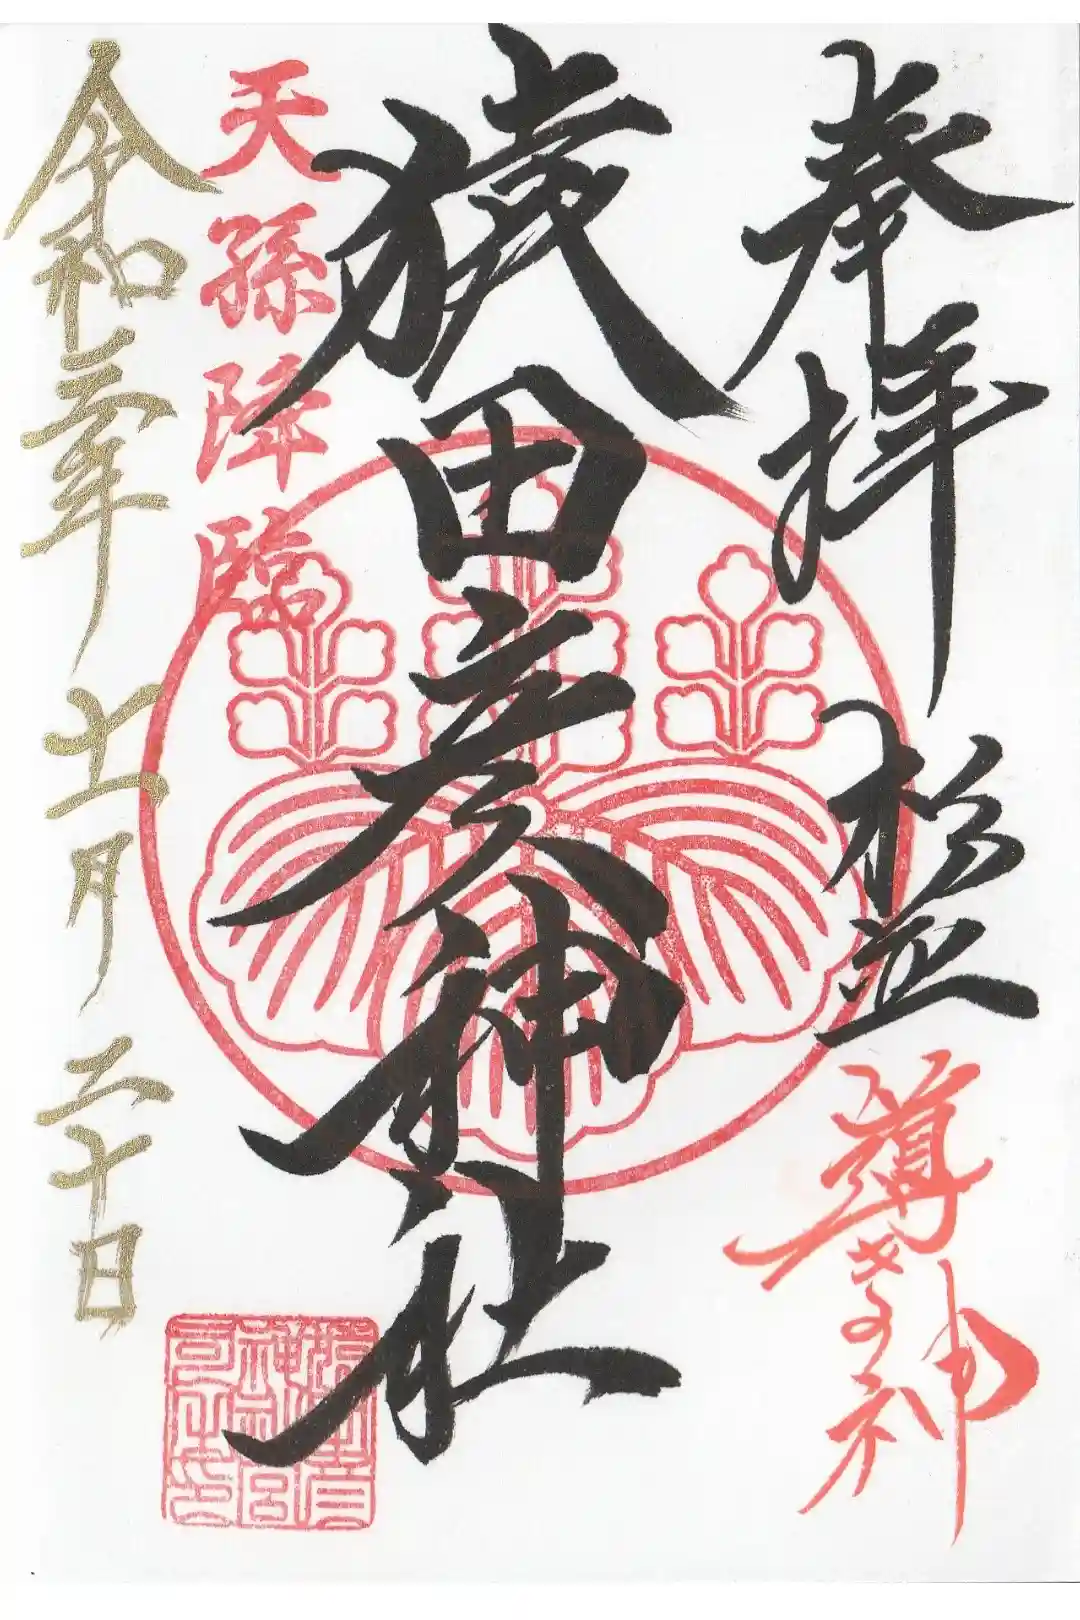 奉拝
松並
導きの神
猿田彦神社
天孫降臨
令和三年
十一月
二十日
猿田彦
神社宮
司之印